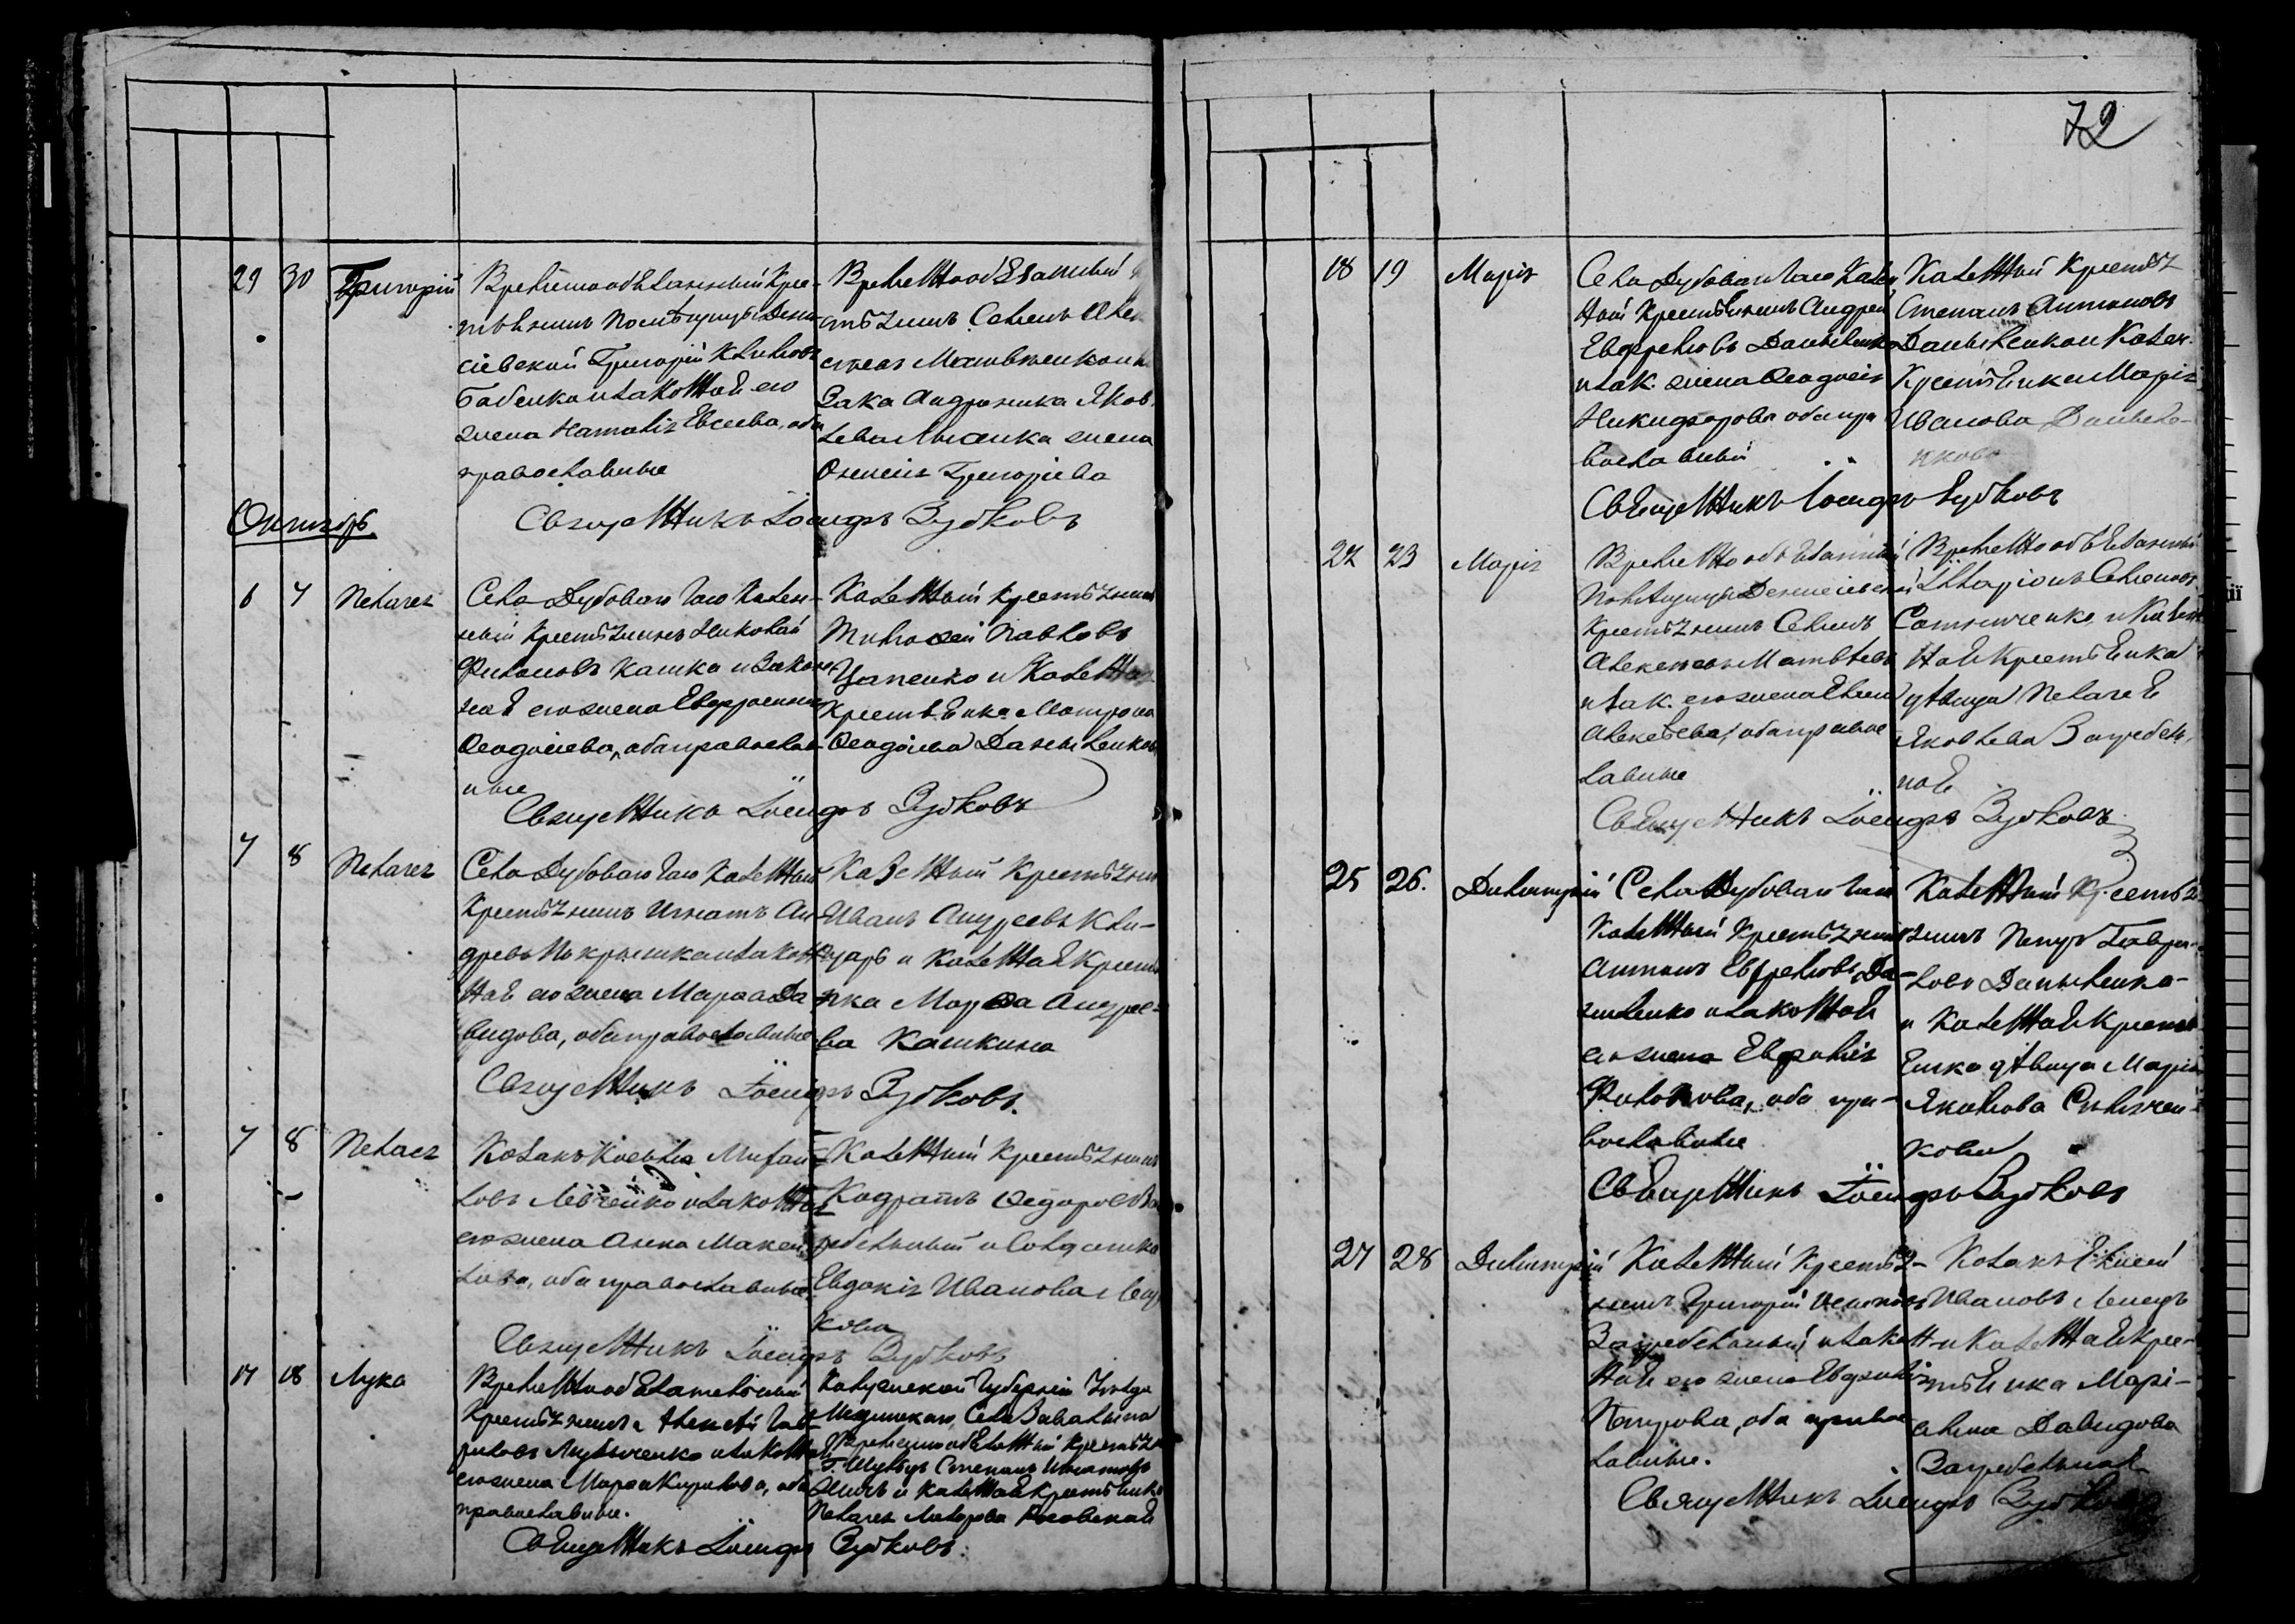 29 30 Григорій
Временнообязанный Кре-
стьянинъ помѣщицы Дени-
сіевской Григорій Климовъ
Бабенко и законная его
жена Наталія Евсеева, оба
православные
Временнообязанный
стьянинъ Семенъ Алек
сѣевъ Матвѣенко и
зака Андросенка Яков
лева жена
Ксенія Григоріева
Священникъ Іосифъ Зубковъ
Октябрь
6 7 Пелагея
Села Дубоваго Гаю Казен-
ный Крестьянинъ Николай
Филиповъ Кашка и закон
ная его жена Евфросинія
Ѳеодосіева, оба православ-
ные
Казенный крестьянинъ
Тимоѳей Павловъ
Цапенко и Казенная
крестьянка Матрона
Ѳеодосіева Даныленкова
Священникъ Іосифъ Зубковъ
7 8 Пелагея
Села Дубоваго Гаю Казенный
Крестьянинъ Игнатъ Ан-
древъ Покрышка и закон-
ная его жена Марѳа Да-
видова, оба православные
Казенный Крестьянинъ
Иванъ Андреевъ Кли-
царь и казенная Крестья
нка Марѳа Андрее-
ва Кашкина
Священникъ Іосифъ Зубковъ.
7 8 Пелагея
Козакъ Косьма Михаи-
ловъ Левченко и законная
его жена Анна Макси-
мова, оба православные
Казенный Крестьянинъ
Кодратъ Ѳедоровъ За
ребельный и Солдатка
Евдокія Иванова
кова
Священникъ Іосифъ Зубковъ
17 18 Лука
Временнообязанный
Крестьянинъ Алексѣй Гав
риловъ Любченко и законная
его жена Марѳа Кирилова, оба
православные.
Калужской Губерніи Уезда
Мединскаго, Села
Временнообязанный Крестья
Г. Степанъ Игнатовъ
и казенная Крестьянка
Пелагея
Священникъ Іосифъ Зубковъ.
72
18 19 Марія
Села Дубоваго Гаю Казен
ный Крестьянинъ Андрей
Евфремовъ Даныленко
и зак. жена Ѳеодосія
Никифорова оба пра
вославный
Казенный Крестья
Степанъ Антоновъ
Даныленко и Казен.
Крестьянка Марія
Иванова Данылен-
кова
Священникъ Іосифъ Зубковъ
22 23 Марія
Временнообязанный
Помѣщицы Денисіевской
Крестьянинъ Семенъ
Алексѣевъ Матвѣевъ
и зак. его жена
Алексѣева, оба правос
лавные
Временнообязанный
Илларіонъ Семеновъ
Сотниченко, и Казен
ная Крестьянка
дѣвица Пелагея
Яковлева Загребель
ная
Священникъ Іосифъ Зубковъ
25 26. Димитрій
Села Дубоваго Гаю
Казенный Крестьянинъ
Антонъ Евфремовъ Да-
ныленко и законная
его жена Евфимія
Филипова, оба пра-
вославные
Казенный Крестья-
нинъ Петръ Гаври-
ловъ Даныленко-
и Казенная Кресть
янка дѣвица Марія
Якимова
кова
Священникъ Іосифъ Зубковъ
27 28 Димитрій
Казенный Крестья-
нинъ Григорій
Загребельный, и закон-
ная его жена Евдокія
Петрова, оба правос
лавные.
Козакъ
Ивановъ
и Казенная Кре-
стьянка Марі-
амна Давидова
Загребельная
Священникъ Іосифъ Зубковъ